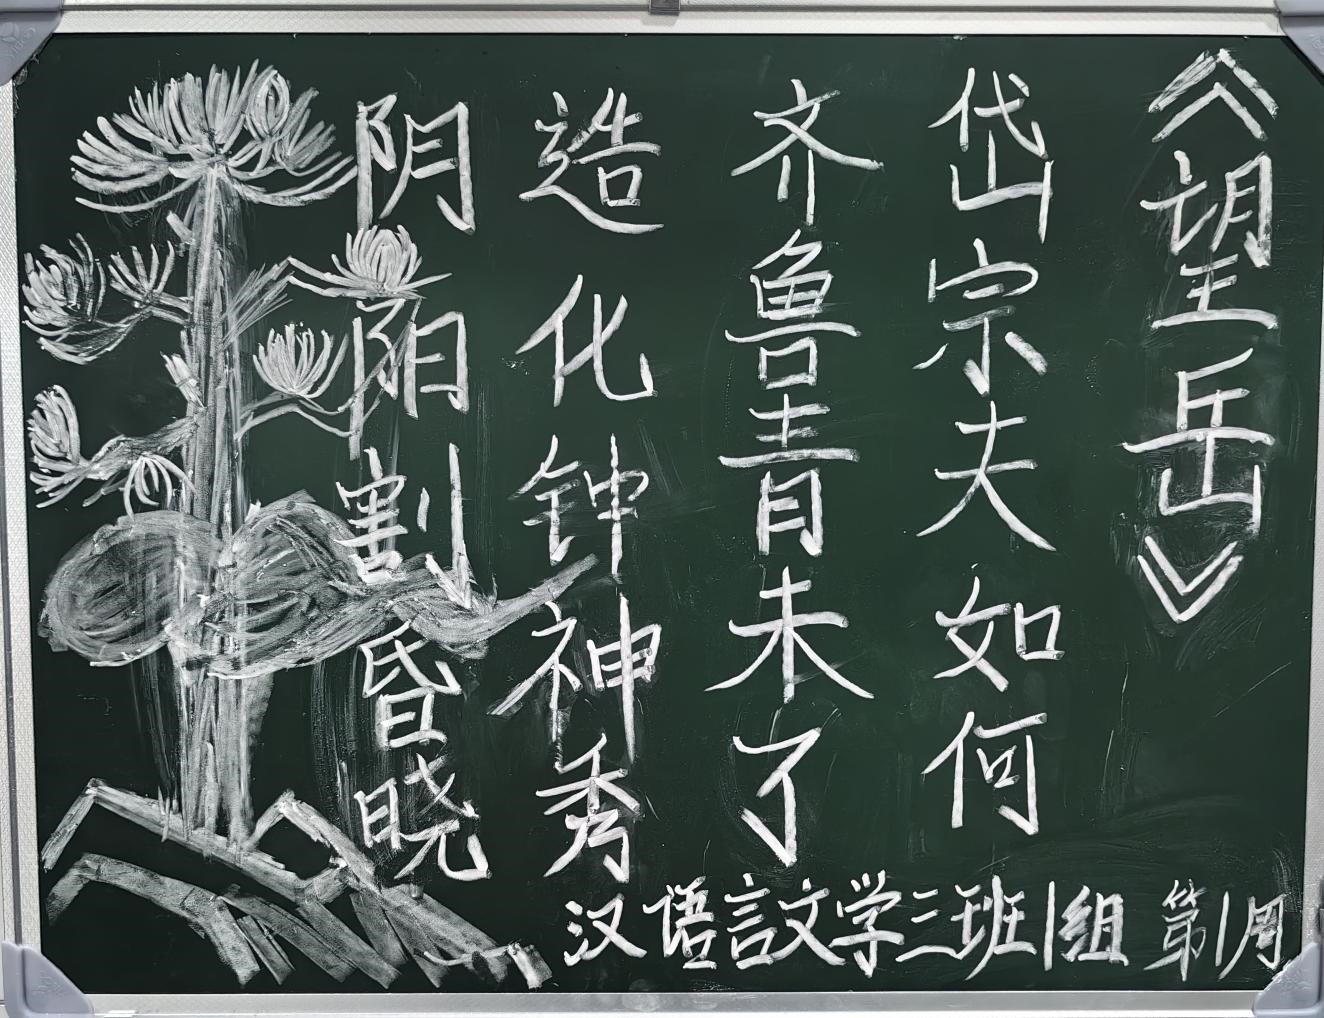 《望岳》
岱宗夫如何
齐鲁青未了
造化钟神秀
阴阳割昏晓
汉语言文学三班1组 第1周